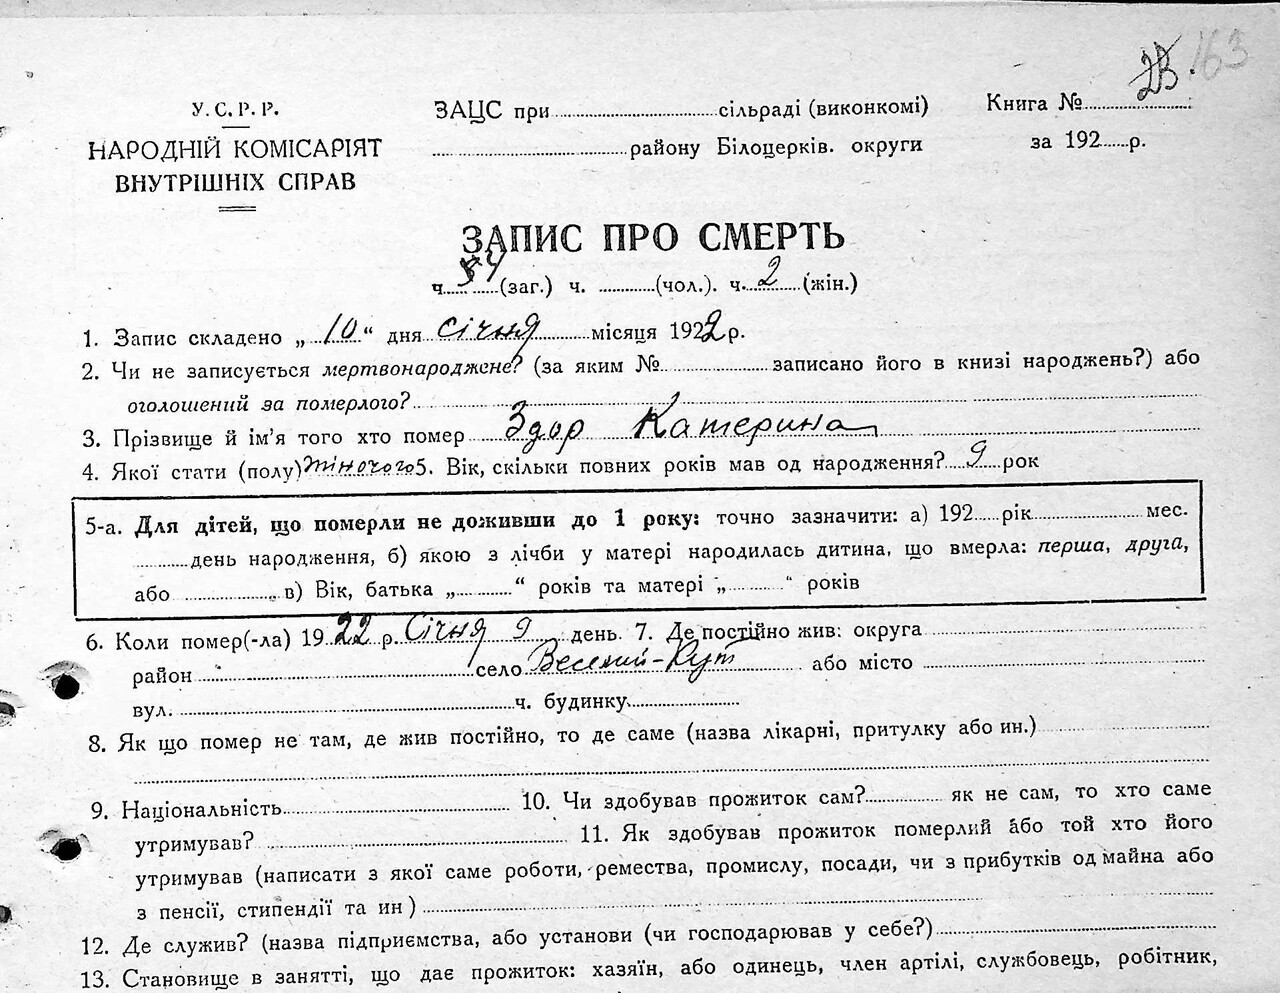 163
У. С. Р. Р.
НАРОДНІЙ КОМІСАРІЯТ
ВНУТРІШНІХ СПРАВ
ЗАЦС при ............ сільраді (виконкомі)
............ району Білоцерків. округи
Книга № ............
за 192......р.
ЗАПИС ПРО СМЕРТЬ
ч. ...... (заг.) ч. ............(чол.). ч. 2 (жін.)
1. Запис складено „ 10 “ дня січня місяця 1922 р.
2. Чи не записується мертвонароджене? (за яким № ............ записано його в книзі народжень?) або
оголошений за померлого? ............
3. Прізвище й ім'я того хто помер Здор Катерина
4. Якої стати (полу) жіночого 5. Вік, скільки повних років мав од народження? 9 рок
5-а. Для дітей, що померли не доживши до 1 року: точно зазначити: а) 192.....рік ............ мес.
............день народження, б) якою з лічби у матері народилась дитина, що вмерла: перша, друга,
або ............ в) Вік, батька „............“ років та матері „............“ років
6. Коли помер(-ла) 1922 р. Січня 9 день. 7. Де постійно жив: округа ............
район ............ село Веселий-Кут або місто ............
вул. ............ ч. будинку ............
8. Як що помер не там, де жив постійно, то де саме (назва лікарні, притулку або ин.) ............
9. Національність ............ 10. Чи здобував прожиток сам? ............ як не сам, то хто саме
утримував? ............ 11. Як здобував прожиток померлий або той хто його
утримував (написати з якої саме роботи, ремества, промислу, посади, чи з прибутків од майна або
з пенсії, стипендії та ин ) ............
12. Де служив? (назва підприємства, або установи (чи господарював у себе?) ............
13. Становище в занятті, що дає прожиток: хазяїн, або одинець, член артілі, службовець, робітник,